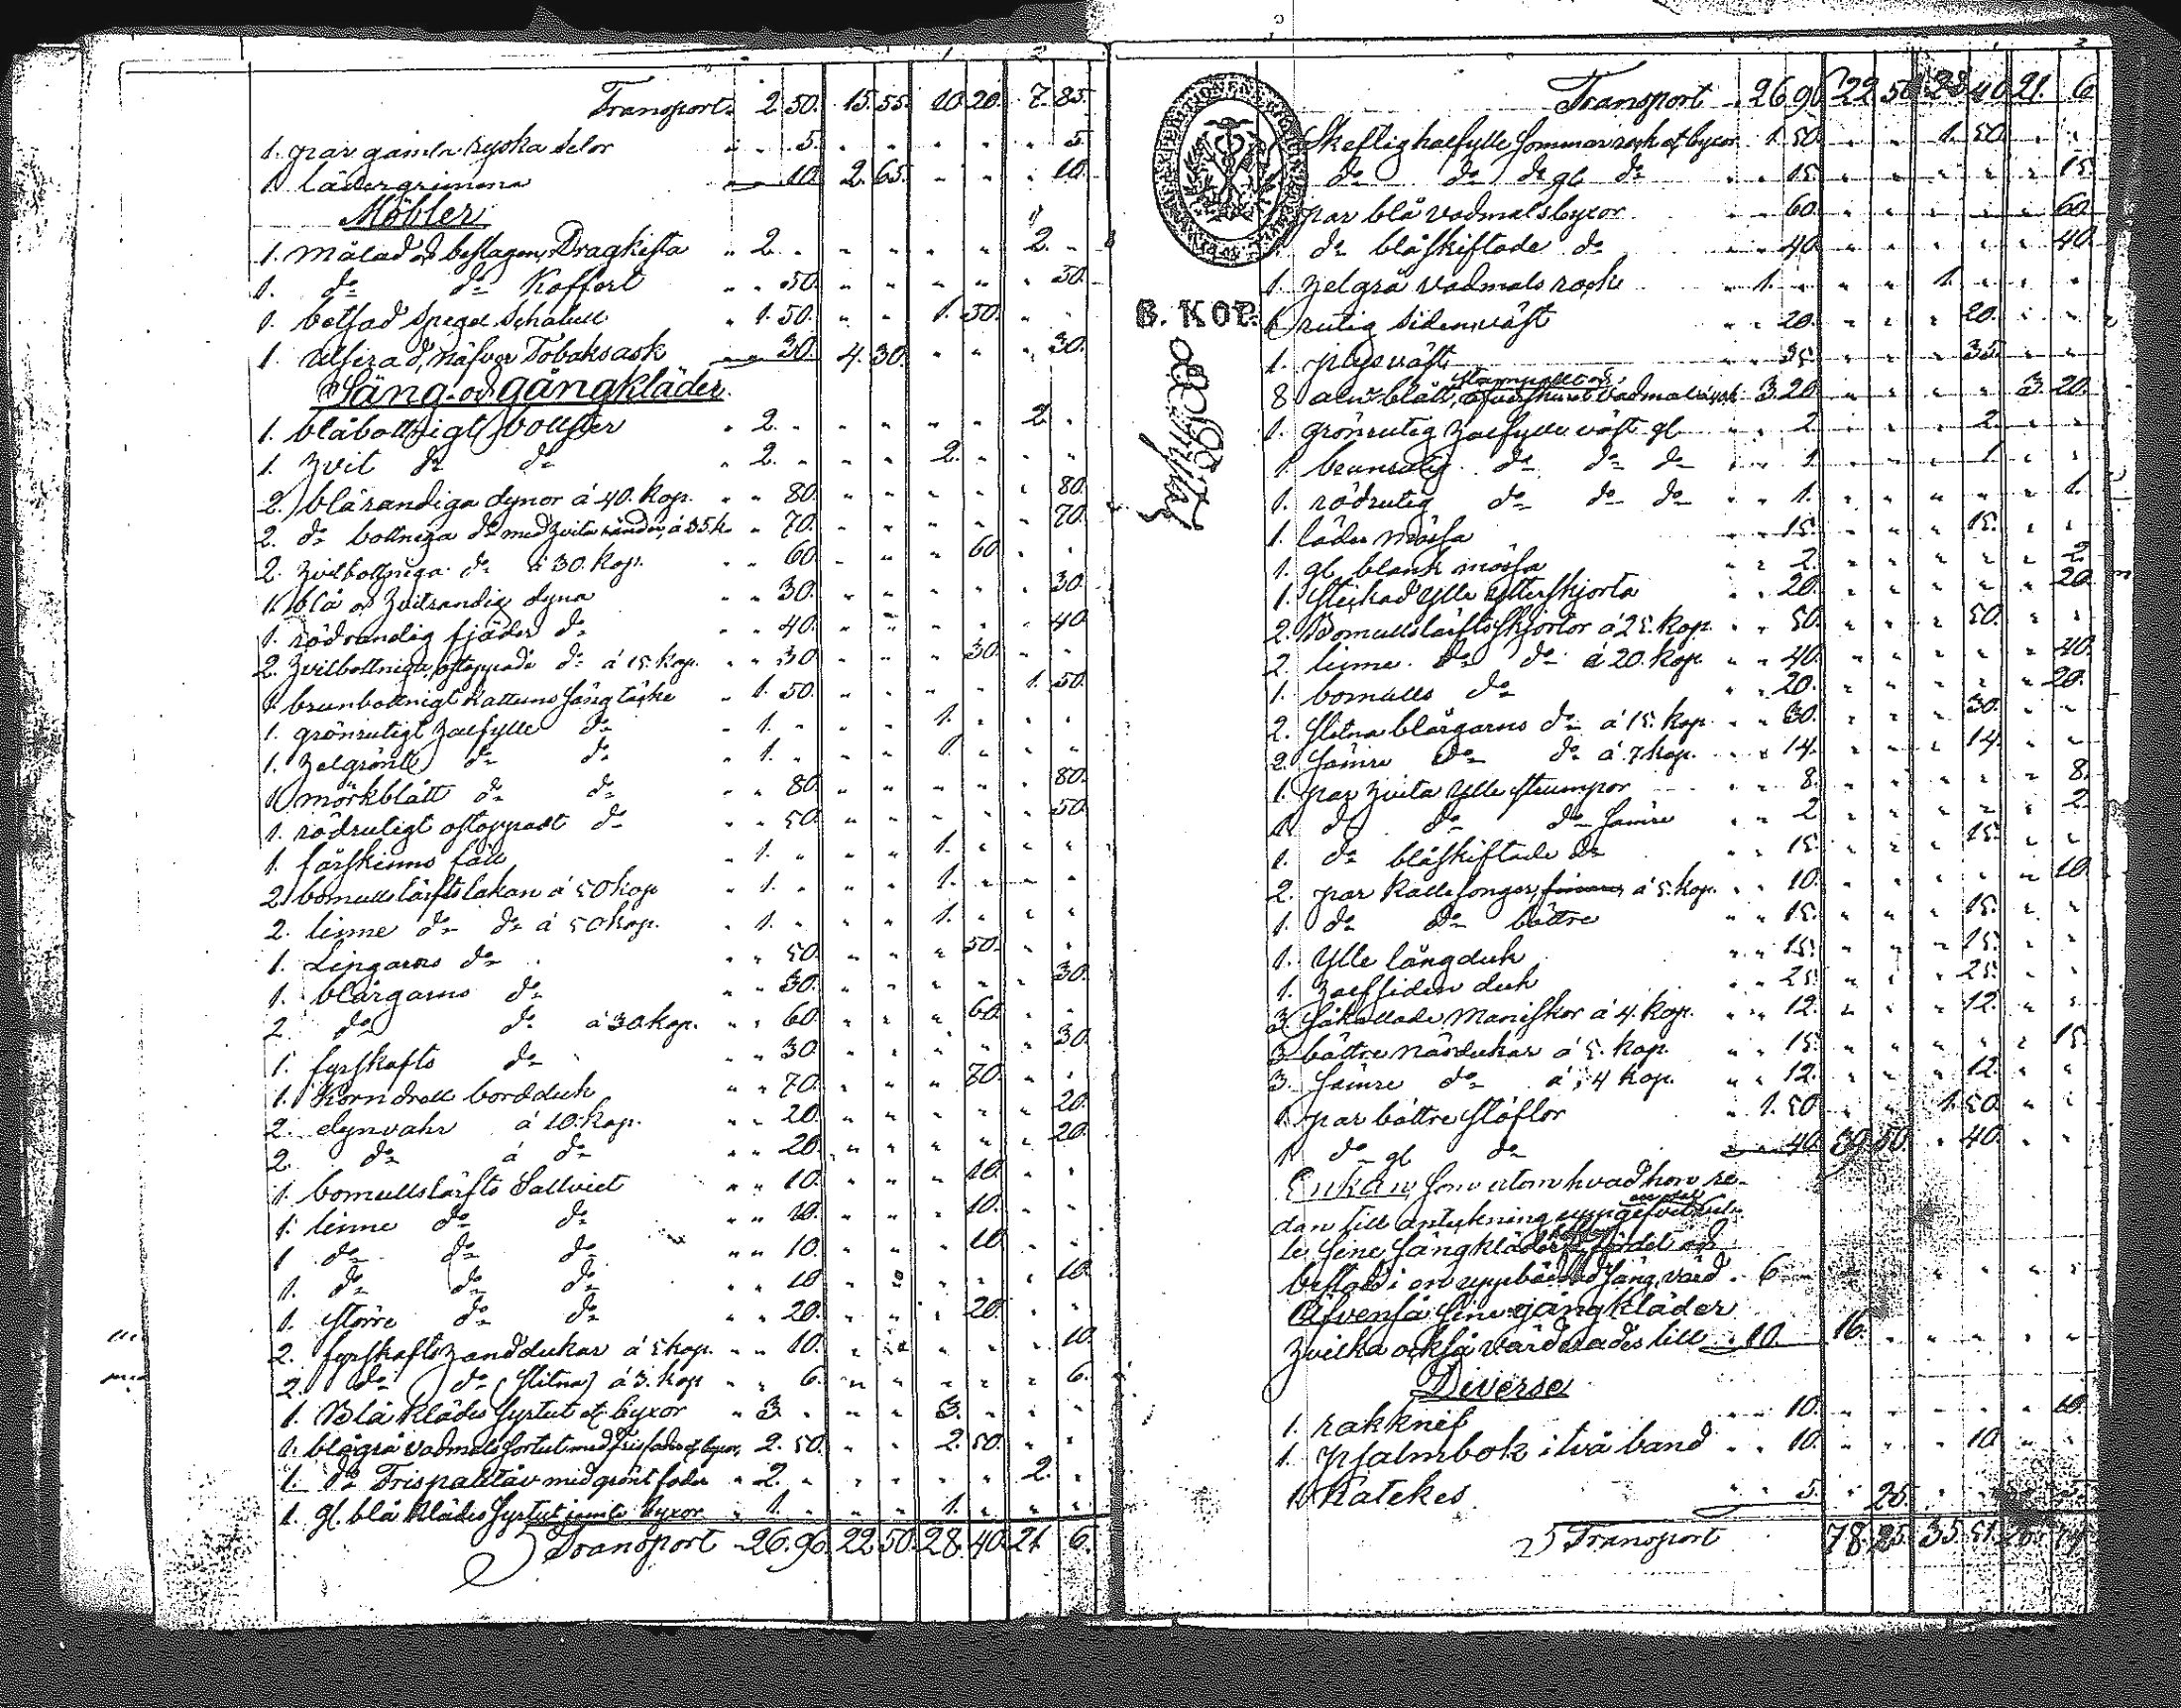 Transport. 2 50. 15 55. 10 20. 7. 85.
1. par gamla ryska selor " " 5. " " " " " 5.
1. lädergrimma " " 10. 2. 65. " " " 10.
Möbler
1. målad o beslagen Dragkista " 2. " " " " " 2. "
1. do do Koffert " " 50. " " " " " 50.
1. betsad spegel schatull " 1. 50. " " 1. 50. " "
1. näfver Tobaksask " " 30. 4. 30. " " " 30.
Säng- och gångkläder.
1. blåbottnigt bolster " 2. " " " " " 2. "
1. hvit do do " 2. " " " 2. " " "
2. blårandiga dynor á 40. kop. " " 80. " " " " " 80.
2. do bottniga do med hvita ränder, á 35 k " 70. " " " " " 70.
2. hvitbottniga do á 30. kop. " " 60. " " " 60. " "
1. blå o hvitrandig dyna " " 30. " " " " " 30.
1. rödrandig fjäder do " " 40. " " " " " 40.
2. hvitbottniga, ostoppade do á 15. kop. " " 30. " " " 30. " "
1. brunbottnigt kattuns sängtäcke " 1. 50. " " " " 1. 50.
1. grönrutigt halfylle do " 1. " " " 1. " " "
1. helgrönt do do " 1. " " " 1. " " "
1. mörkblått do do " " 80. " " " " " 80.
1. rödrutigt ostoppadt do " " 50. " " " " " 50.
1. fårskinns fäll " 1. " " " 1. " " "
2. bomullslärfts lakan á 50 kop " 1. " " " 1. " " "
2. linne do do á 50 kop. " 1. " " " 1. " " "
1. Lingarns do " " 50. " " " 50. " "
1. blårgarns do " " 30. " " " " " 30.
2. do do á 30. kop. " " 60. " " " 60. " "
1. fyrskafts do " " 30. " " " " " 30.
1. Korndrell bordduk " " 70. " " " 70. " "
2. dynvahr á 10. kop. " " 20. " " " " " 20.
2. do á do " " 20. " " " " " 20.
1. bomullslärfts Sallviet " " 10. " " " 10. " "
1. linne do do " " 10. " " " 10. " "
1 do do do " " 10. " " " 10 " "
1. do do do " " 10 " " " " " 10.
1. större do do " " 20. " " " 20. " "
2. fyrskafts handdukar á 5 kop. " " 10. " " " " " 10.
2. do do (slitna) á 3. kop " " 6. " " " " " 6.
1. Blå klädes syrtut o byxor " 3. " " " 3. " " "
1. blågrå vadmals sortut med o byxor, 2. 50. " " 2. 50. " "
1. do med grönt foder " 2. " " " " " 2. "
1. gl. blå klädes syrtut jemte byxor " 1. " " " 1. " " "
Transport 26. 90. 22 50. 28. 40. 21. 6.
Transport 26 90 22 50 28 40 21. 6
halfylle sommarrock o byxor 1 50. " " 1. 50. " "
1 do do do gl do " " 15. " " " " " 15.
1 par blå vadmalsbyxor " " 60. " " " " " 60.
1 do blåskiftade do " " 40. " " " " " 40.
1 helgrå vadmals rock " 1. " " " 1. " " "
1 rutig sidenväst " " 20. " " " 20. " "
1. väst " " 35. " " " 35. " "
8 aln blått, vadmal 3. 20 " " " " 3. 20.
1. grönrutig halfylle väst gl " 2. " " " 2. " "
1. brunrutig do do do " 1. " " " 1. " "
1. rödrutig do do do " " 1. " " " " " 1.
1. läder mössa " " 15. " " " 15. " "
1. gl blank mössa " " 2. " " " " " 2.
1. stickad ylle ytterskjorta " " 20. " " " " " 20.
2. Bomullslärfts skjortor á 25. kop. " " 50. " " " 50. " "
2. linne do do á 20. kop " " 40. " " " " " 40.
1. bomulls do " " 20. " " " " " 20.
2. slitna blårgarns do á 15. kop. " " 30. " " " 30. " "
2. sämre do do á 7 kop. " " 14. " " " 14. " "
1. par hvita ylle strumpor " " 8. " " " " " 8.
1. do do do sämre " " 2 " " " " " 2.
1. do blåskiftade do " " 15. " " " 15. " "
2. par kallsonger, á 5. kop. " " 10. " " " " " 10.
1. do do bättre " " 15. " " " 15. " "
1. Ylle långduk " " 15. " " " 15. " "
1. halfsiden duk " " 25. " " " 25. " "
3. såkallade Maniskor á 4. kop. " " 12. " " " 12. " "
3. bättre näsdukar á 5. kop. " " 15. " " " " " 15.
3. sämre do á 4 kop. " " 12. " " " 12. " "
1. par bättre stöflor " 1. 50 " " 1. 50. " "
1 do gl do " " 40. 39 50. " 40. " "
Enkan som utom hvad hon re-
dan till antekning
le sine sängkläder
bestod i en uppbäddad säng, värd " 6.
Äfvenså sine gångkläder
hvilka också värderades till " 10. 16. " " " " "
Diverse
1. rakknif " " 10. " " " " " 10.
1. psalmbok i två band " " 10. " " " 10. " "
1. Katekes " " 5. " 25. " " " 5.
Transport 78. 25. 35. 51.
S. KOP.